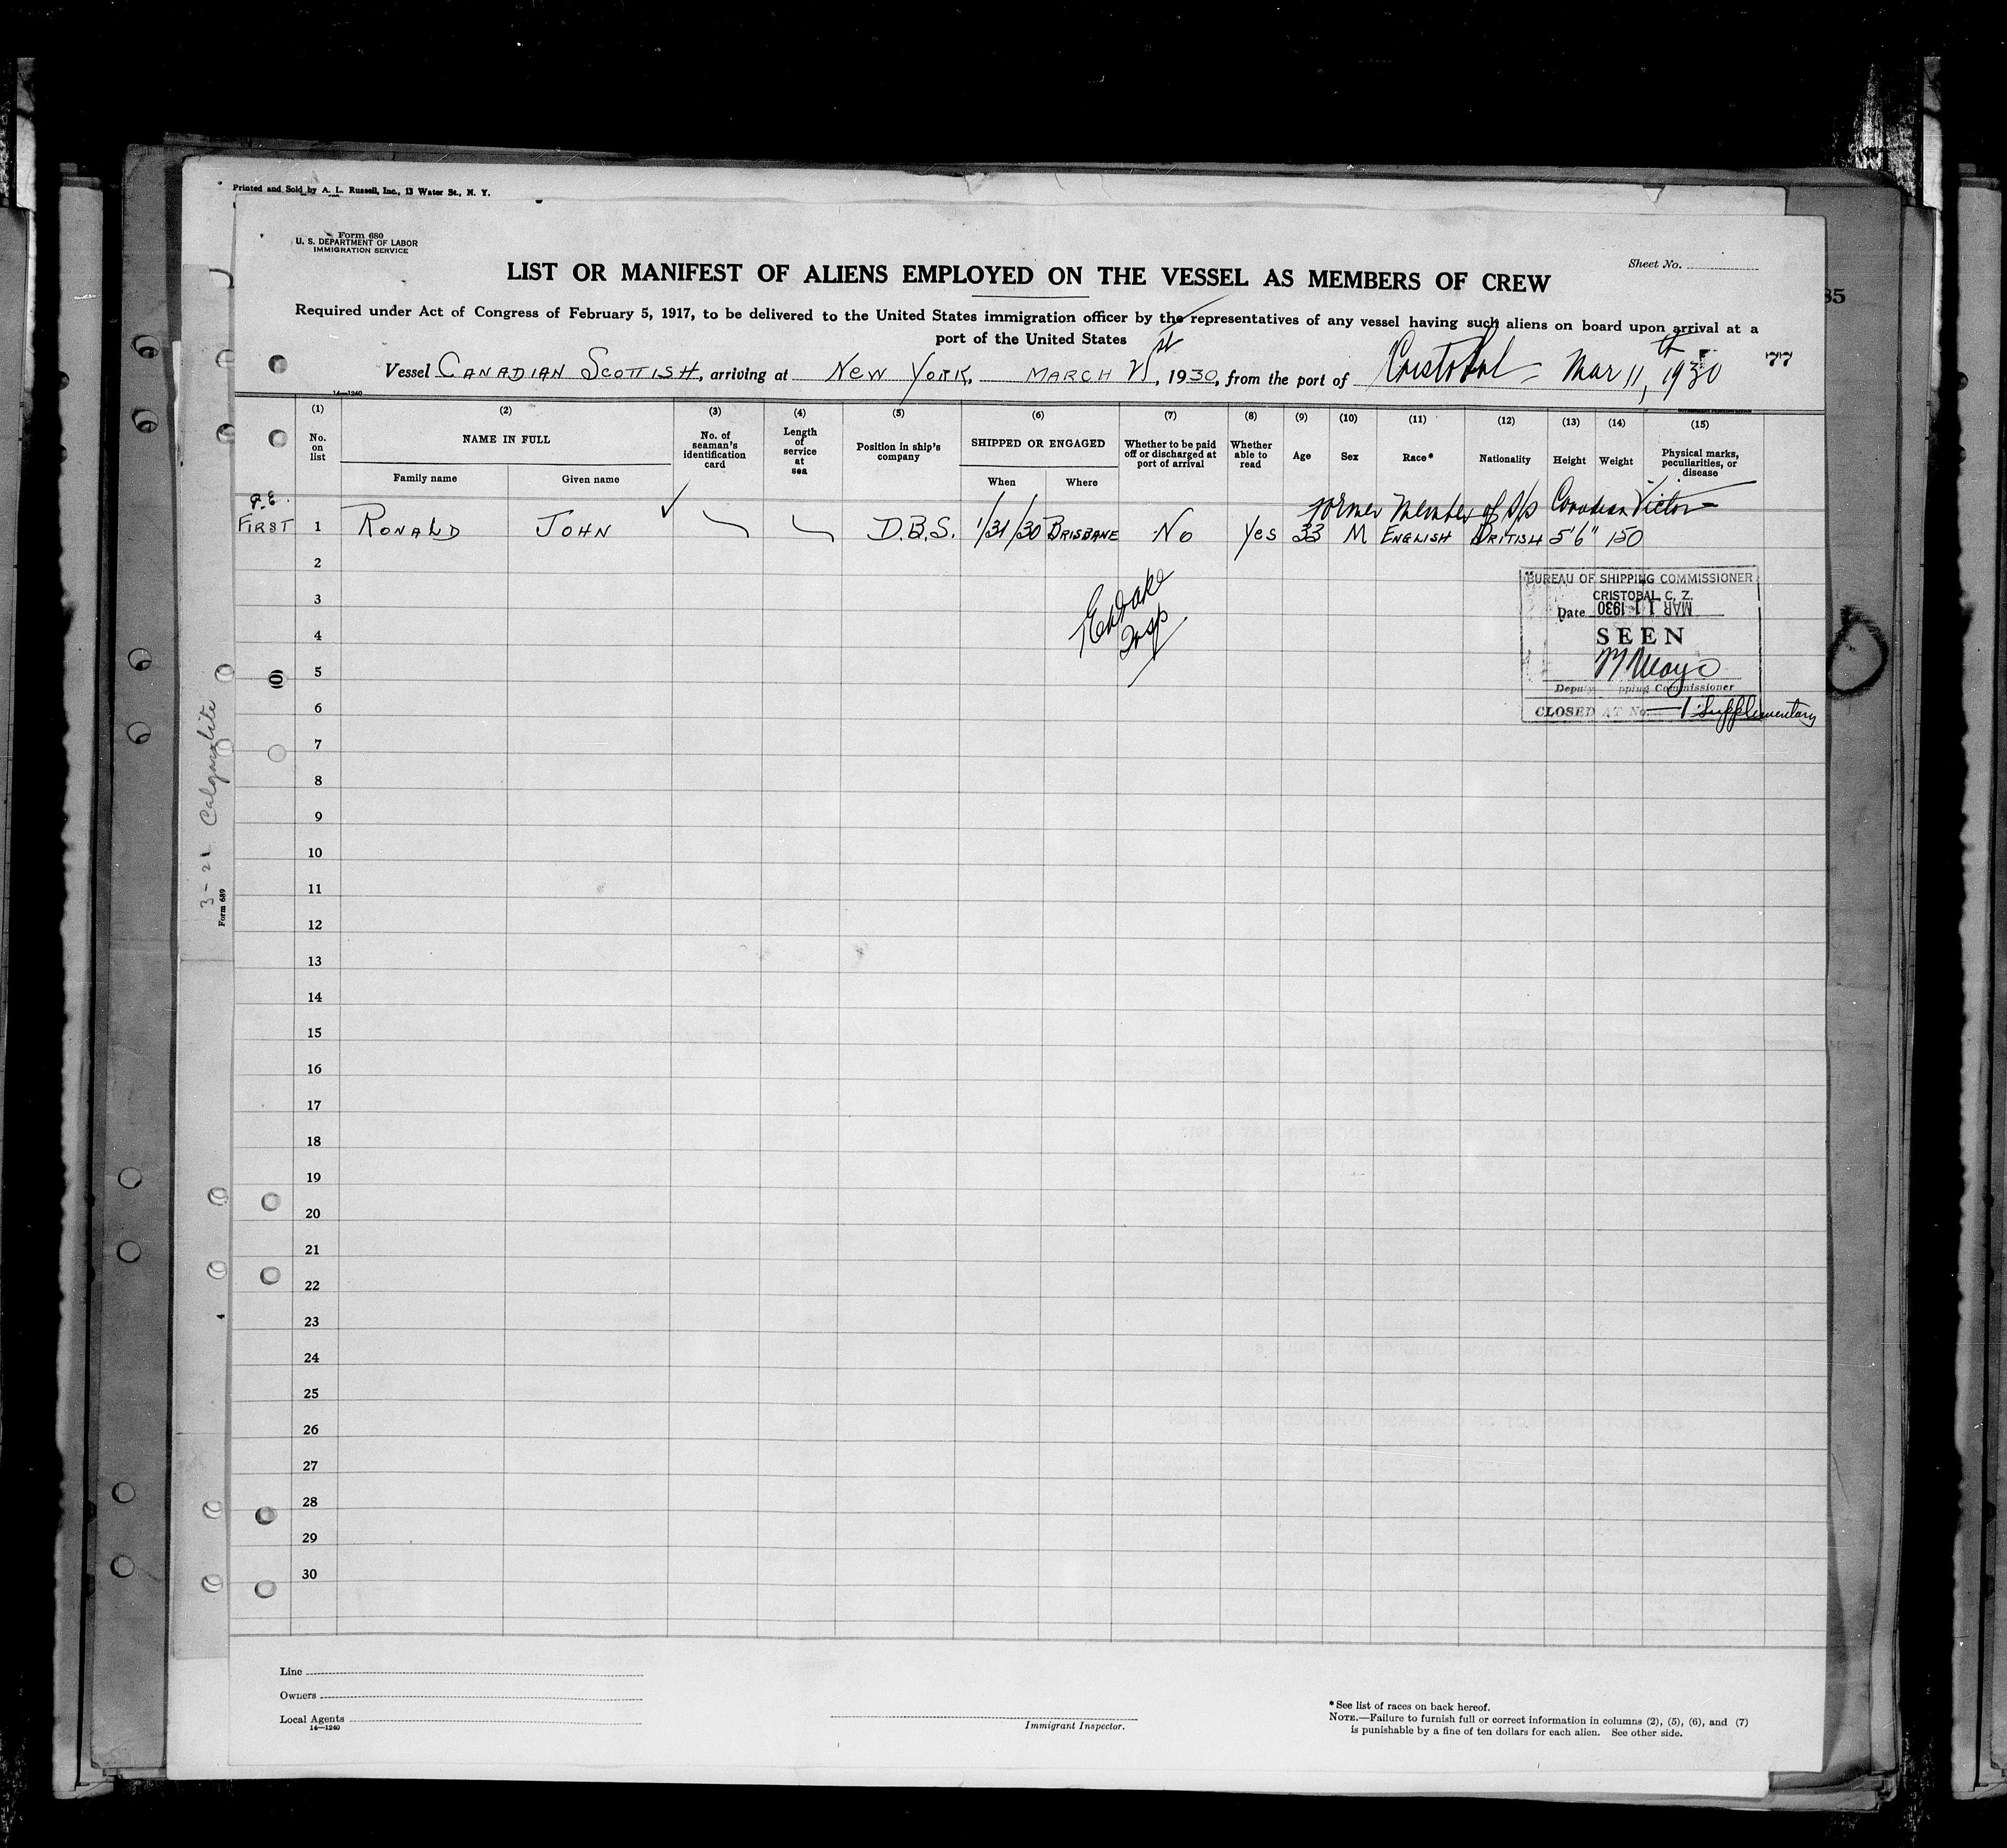 Printed and Sold by A. L. Russell, Inc., 13 Water St., N. Y.
Form 680
U. S. DEPARTMENT OF LABOR
IMMIGRATION SERVICE
Sheet No.
LIST OR MANIFEST OF ALIENS EMPLOYED ON THE VESSEL AS MEMBERS OF CREW
85
Required under Act of Congress of February 5, 1917, to be delivered to the United States immigration officer by the representatives of any vessel having such aliens on board upon arrival at a
port of the United States
Vessel CANADIAN SCOTTISH, arriving at NEW YORK, MARCH 21st, 1930, from the port of Cristobal - Mar 11th, 1930 77
14—1240
(1) (2) (3) (4) (5) (6) (7) (8) (9) (10) (11) (12) (13) (14) (15)
No. on list NAME IN FULL No. of seaman's identification card Length of service at sea Position in ship's company SHIPPED OR ENGAGED Whether to be paid off or discharged at port of arrival Whether able to read Age Sex Race* Nationality Height Weight Physical marks, peculiarities, or disease
Family name Given name When Where
P.E. former Member of S/S Canadian Victor
FIRST 1 RONALD JOHN D.B.S. 1/31/30 BRISBANE No Yes 33 M ENGLISH BRITISH 5'6" 150
2
BUREAU OF SHIPPING COMMISSIONER
3
CRISTOBAL, C. Z.
Date MAR 11 1930
4
Insp
SEEN
5
Deputy Shipping Commissioner
6
CLOSED AT No. 1 Supplementary
7
8
9
10
11
12
13
14
15
16
17
18
19
20
21
22
23
24
25
26
27
28
29
30
3-21 Calgarolite
Form 689
4
Line
Owners
Local Agents
14—1240
Immigrant Inspector.
*See list of races on back hereof.
NOTE.—Failure to furnish full or correct information in columns (2), (5), (6), and (7)
is punishable by a fine of ten dollars for each alien. See other side.